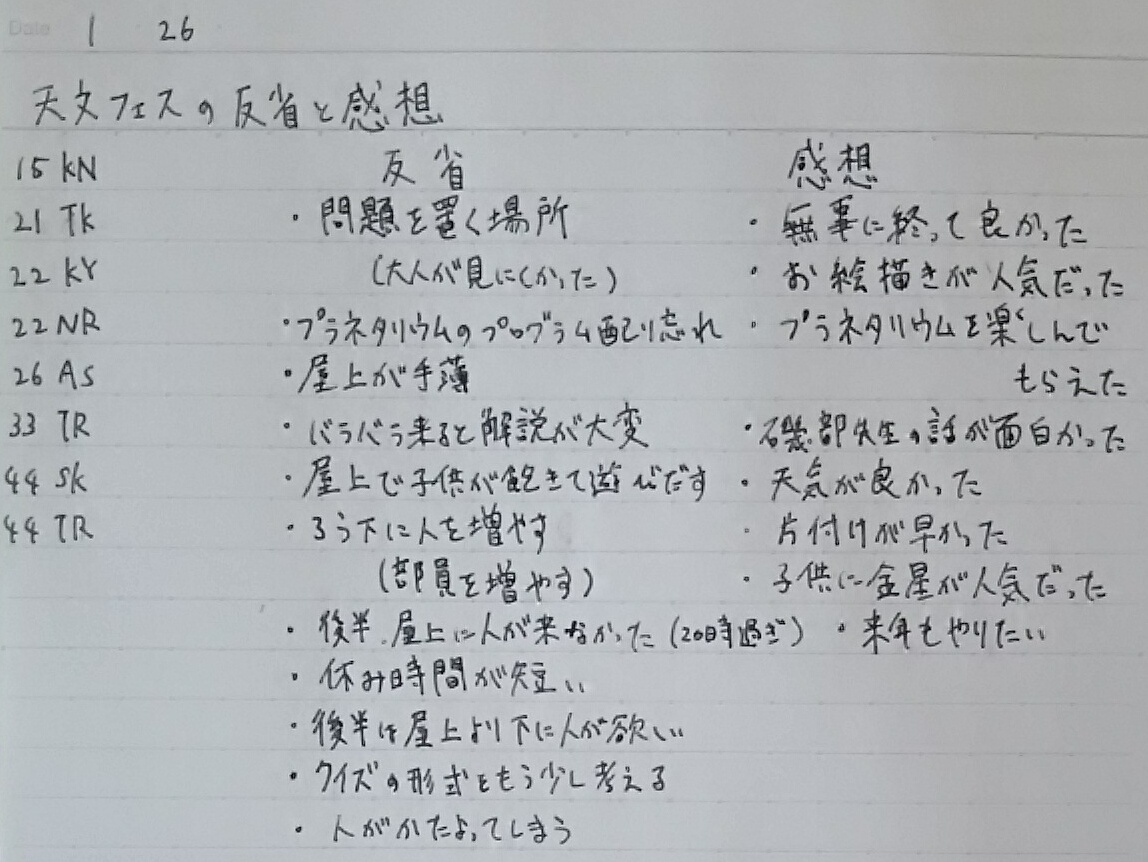 Date 1 26
天文フェスの反省と感想
15 KN 反省 感想
21 TK ・問題を置く場所 ・無事に終って良かった
22 KY (大人が見にくかった) ・お絵描きが人気だった
22 NR ・プラネタリウムのプログラム配り忘れ ・プラネタリウムを楽しんで
26 AS ・屋上が手薄 もらえた
33 TR ・バラバラ来ると解説が大変 ・磯部先生の話が面白かった
44 SK ・屋上で子供が飽きて遊びだす ・天気が良かった
44 TR ・ろう下に人を増やす ・片付けが早かった
(部員を増やす) ・子供に金星が人気だった
・後半、屋上に人が来なかった(20時過ぎ) ・来年もやりたい
・休み時間が短い
・後半は屋上より下に人が欲しい
・クイズの形式をもう少し考える
・人がかたよってしまう